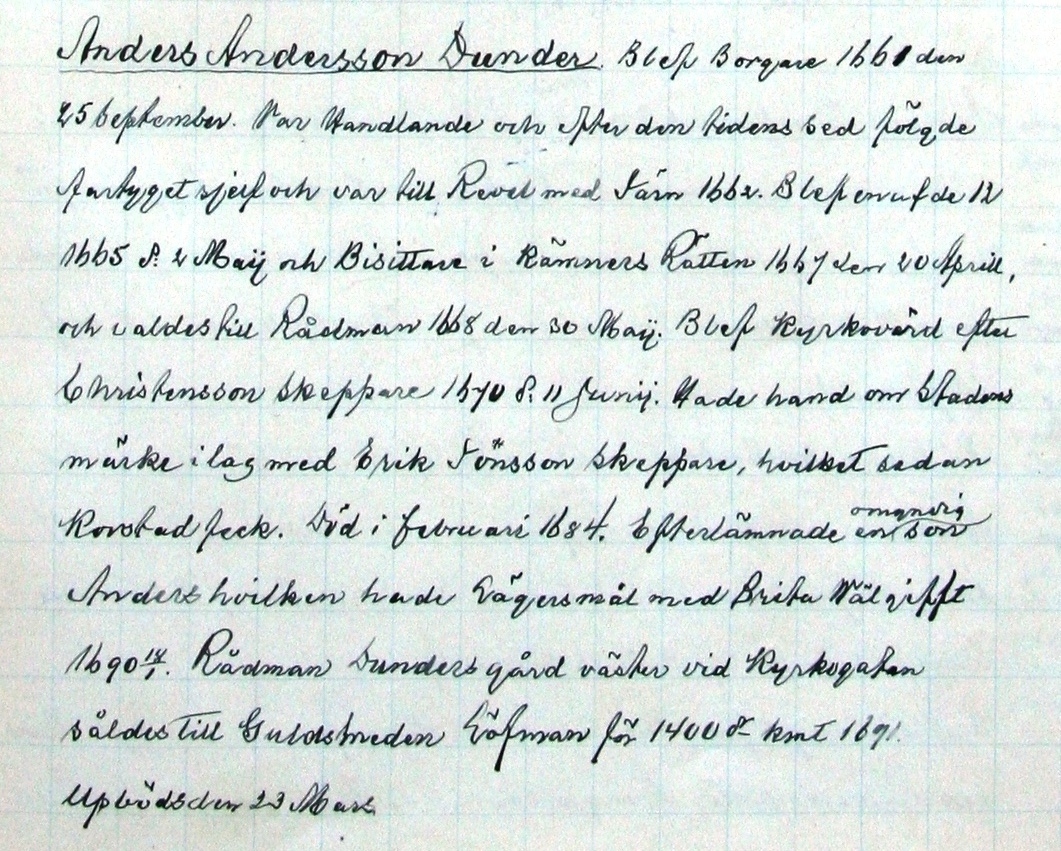 Anders Andersson Dunder. Blef Borgare 1661 den
25 September. Var Handlande och efter den tidens sed fölgde
fartyget sjelf och var till Revel med Järn 1662. Blef en af de 12
1665 d. 2 Maij och Bisittare i Kämners Rätten 1667 den 20 Aprill,
och valdes till Rådman 1668 den 30 Maij. Blef Kyrkovärd efter
Christensson Skeppare 1670 d. 11 Junij. Hade hand om Stadens
märke i lag med Erik Jönsson Skeppare, hvilket sedan
Korstad feck. Död i februari 1684. Efterlämnade en omyndig son
Anders hvilken hade Lägersmål med Brita Wälgifft
1690 14/1. Rådman Dunders gård väster vid Kyrkogatan
såldes till Guldsmeden Löfman för 1400 dr kmt 1691.
Upbödsden 23 Mars